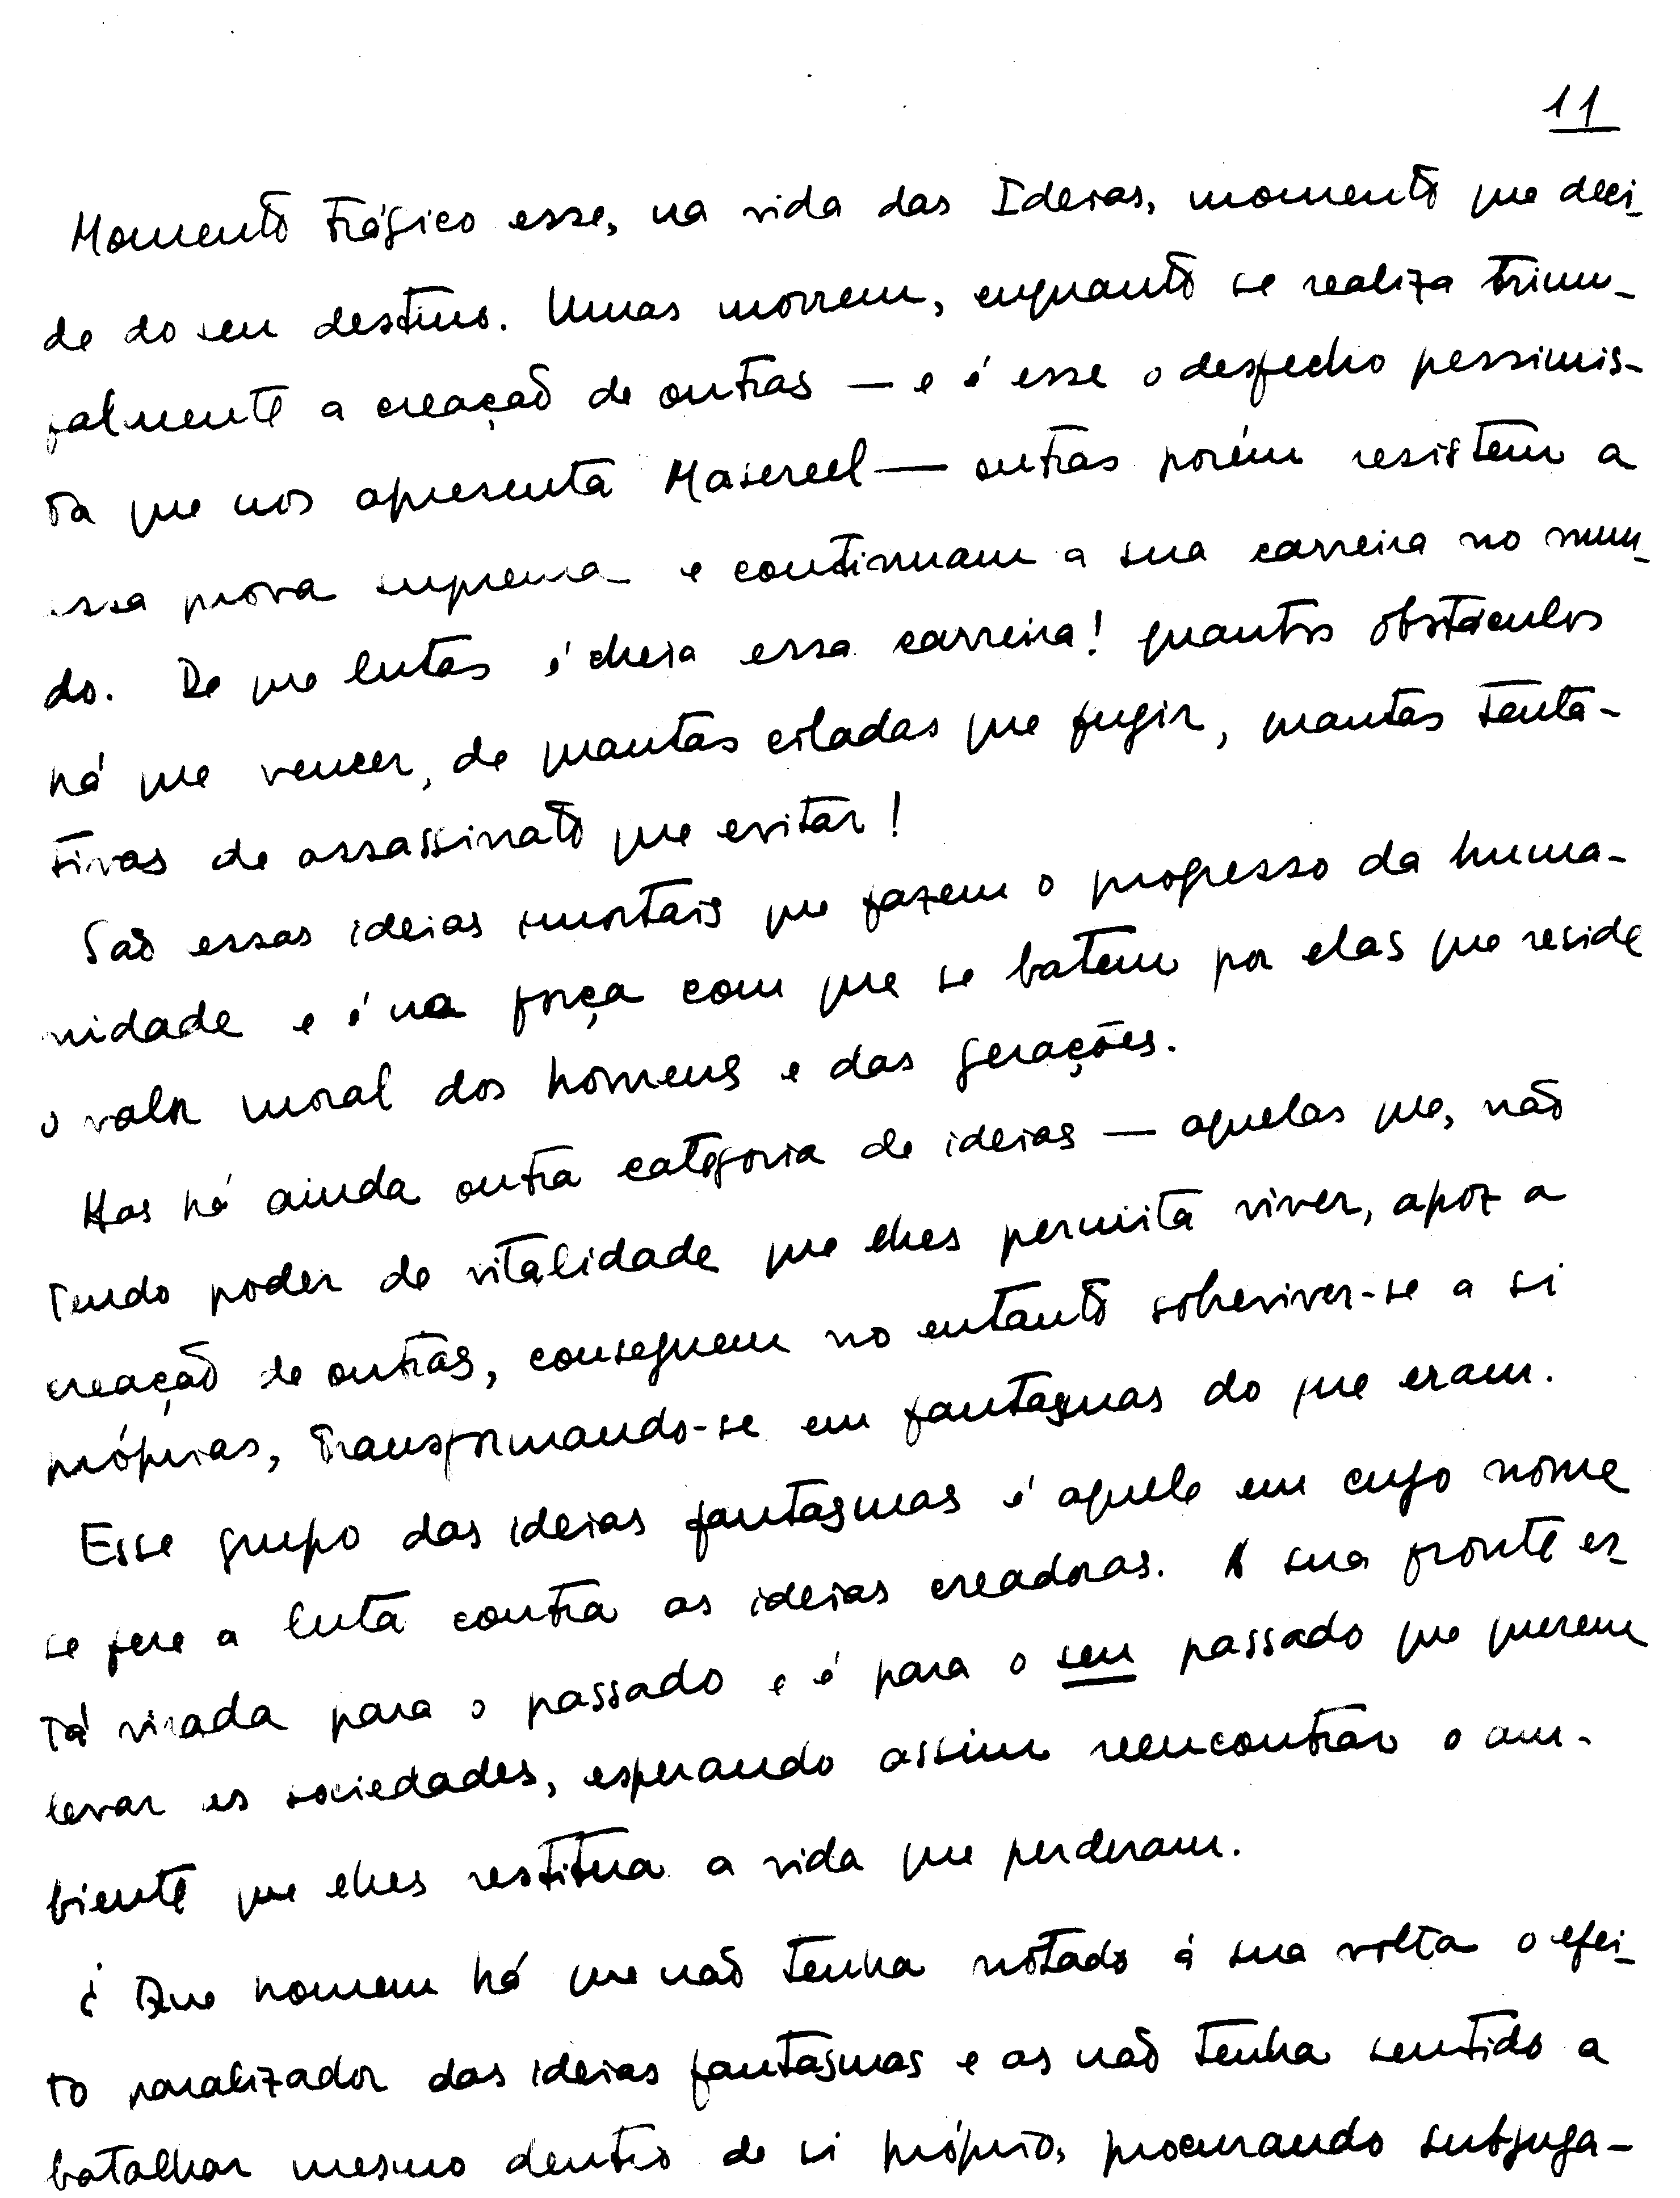 11
Momento trágico esse, na vida das Ideias, momento que deci-
de do seu destino. Umas morrem, enquanto se realiza triun-
falmente a creação de outras — e é esse o desfecho pessimis-
ta que nos apresenta Masereel — outras porém resistem a
essa prova suprema e continuam a sua carreira no mun-
do. De que lutas é cheia essa carreira! quantos obstáculos
há que vencer, de quantas ciladas que fugir, quantas tenta-
tivas de assassinato que evitar!
São essas ideias imortais que fazem o progresso da huma-
nidade e é na força com que se batem por elas que reside
o valor moral dos homens e das gerações.
Mas há ainda outra categoria de ideias — aquelas que, não
tendo poder de vitalidade que lhes permita viver, apoz a
creação de outras, conseguem no entanto sobreviver-se a si
próprias, transformando-se em fantasmas do que eram.
Esse grupo das ideias fantasmas é aquele em cujo nome
se fere a luta contra as ideias creadoras. A sua fronte es-
tá virada para o passado e é para o seu passado que querem
levar as sociedades, esperando assim reencontrar o am-
biente que lhes restitua a vida que perderam.
¿ Que homem há que não tenha notado á sua volta o efei-
to paralizador das ideias fantasmas e as não tenha sentido a
batalhar mesmo dentro de si próprio, procurando subjuga-